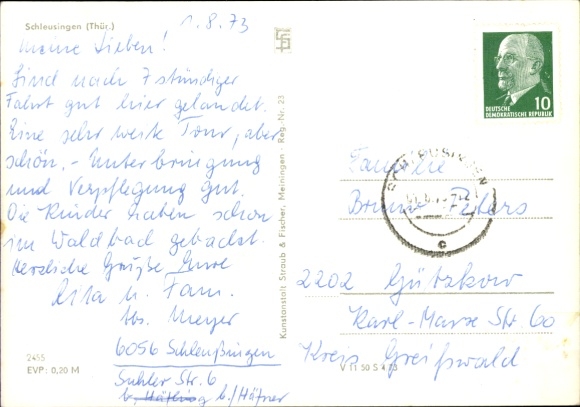 Schleusingen (Thür.)
1.8.73
Meine Lieben!
Sind nach 7 stündiger
Fahrt gut hier gelandet.
Eine sehr weite Tour, aber
schön. - Unterbringung
und Verpflegung gut.
Die Kinder haben schon
im Waldbad gebadet.
Herzliche Grüße Eure
Rita u. Fam.
bs. Meyer
6056 Schleußingen
Suhler Str. 6
b./Häfner
2455
EVP: 0,20 M
Kunstanstalt Straub & Fischer, Meiningen - Reg. Nr. 23
V 11 50 S 4 73
10
DEUTSCHE
DEMOKRATISCHE REPUBLIK
SCHLEUSINGEN
c
Familie
Bruno Peters
2202 Gützkow
Karl-Marx Str. 60
Kreis Greifswald